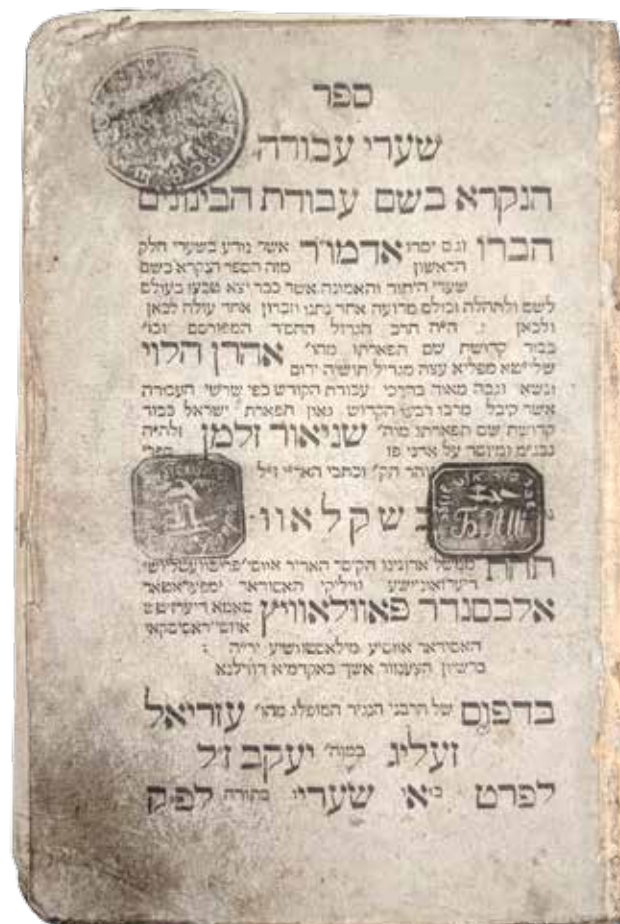 ספר
שערי עבודה
הנקרא בשם עבודת הבינונים
הברו וגם יסדו אדמו״ר אשר נודע בשערי חלק
הראשון מזה הספר הנקרא בשם
שערי היחוד והאמונה אשר כבר יצא טבעו בעולם
לשם ולתהלה וכולם מרועה אחד נתנו וזכרון אחד עולה לכאן
ולכאן ה״ה הרב הגדול החסיד המפורסם וכו׳
כבוד קדושת שם תפארתו מהו׳ אהרן הלוי
שליט״א מפליא עצה מגדיל תושיה ירום
ונשא וגבה מאוד בדרכי עבודת הקודש כפי שרשי העבודה
אשר קיבל מרבו רבינו הקדוש גאון תפארת ישראל כבוד
קדושת שם תפארתו מוה׳ שניאור זלמן זלה״ה
נבג״מ ומיוסד על אדני פז ספרי
זוהר הק׳ וכתבי האר״י ז״ל
בשקלאוו
תחת ממשל אדונינו הקיסר האדיר
אלכסנדר פאוולאוויץ
האסודאר מילאסטיוויישע יר״ה
ברשיון הצענזור אשר באקדמיא דווילנא
בדפוס של הרבני הנגיד המופלג מהו׳ עזריאל
זעליג במוה׳ יעקב ז״ל
לפרט באו שערי בתודה לפ״ק
БАШ